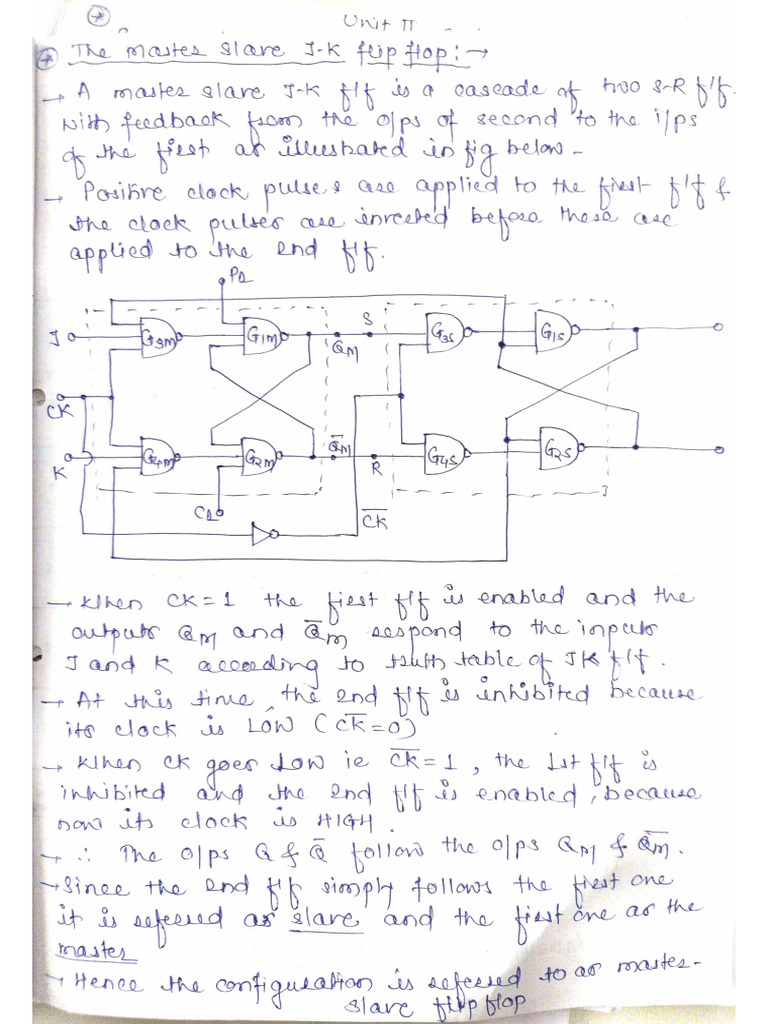 Unit II
The master slave J-K flip flop :→
→ A master slave J-K f/f is a cascade of two S-R f/f.
with feedback from the o/ps of second to the i/ps
of the first as illustrated in fig below -
→ Positive clock pulses are applied to the first f/f &
the clock pulses are inverted before these are
applied to the 2nd f/f.
J
CK
K
Pr
Cr
G3M
G1M
G4M
G2M
QM
S
Q̅M
R
C̅K̅
G3S
G1S
G4S
G2S
→ When CK = 1 the first f/f is enabled and the
outputs QM and Q̅M respond to the inputs
J and K according to truth table of JK f/f.
→ At this time, the 2nd f/f is inhibited because
its clock is LOW (C̅K̅=0)
→ When CK goes Low ie C̅K̅=1, the 1st f/f is
inhibited and the 2nd f/f is enabled, because
now its clock is HIGH.
→ ∴ The o/ps Q & Q̅ follow the o/ps QM & Q̅M.
→ Since the 2nd f/f simply follows the first one
it is refered as slave and the first one as the
master
→ Hence the configuration is refered to as master-
slave flip flop